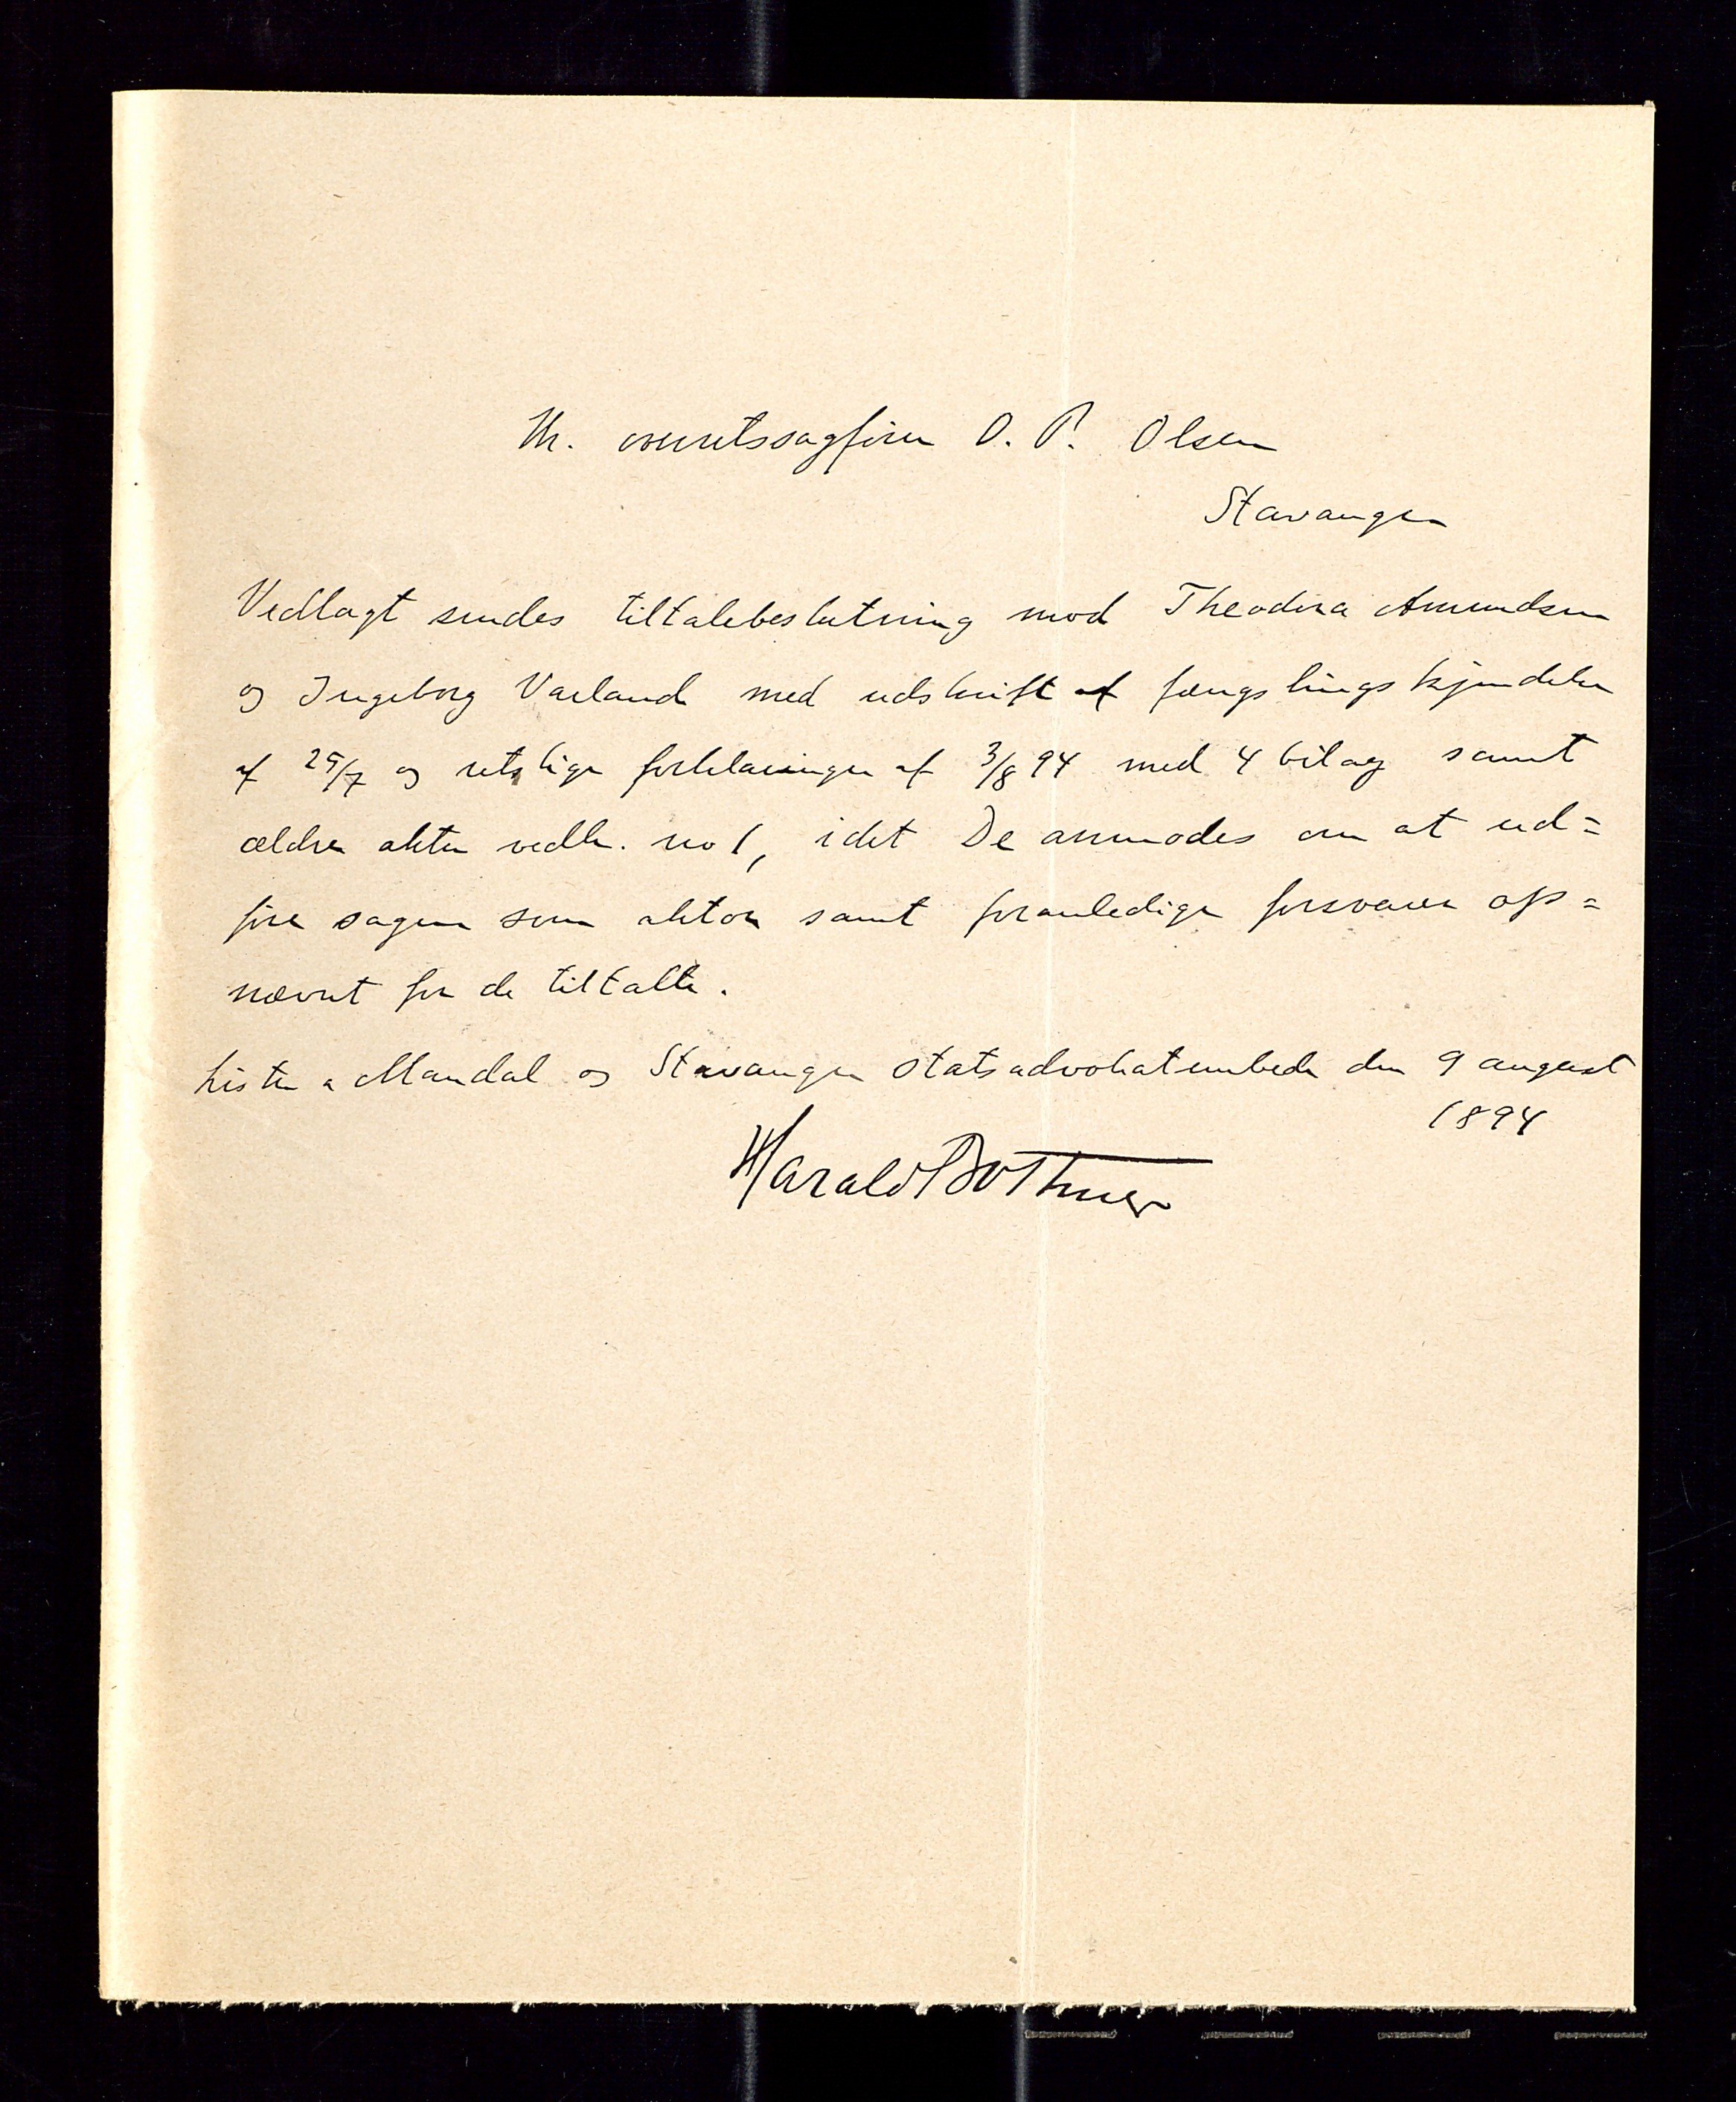 Hr. overretssagfører O. P. Olsen
Stavanger
Vedlagt sendes tiltalebeslutning mod Theodora Amundsen
og Ingeborg Varland med udskrift af fængslingskjendelse
af 25/7 og retslige forklaringer af 3/8 94 med 4 bilag samt
ældre akter vedk. no 1, idet De anmodes om at ud=
føre sagen som aktor samt foranledige forsvarer op=
nævnt for de tiltalte.
Lister & Mandal og Stavanger statsadvokatembede den 9 august
1894
Harald Bothner